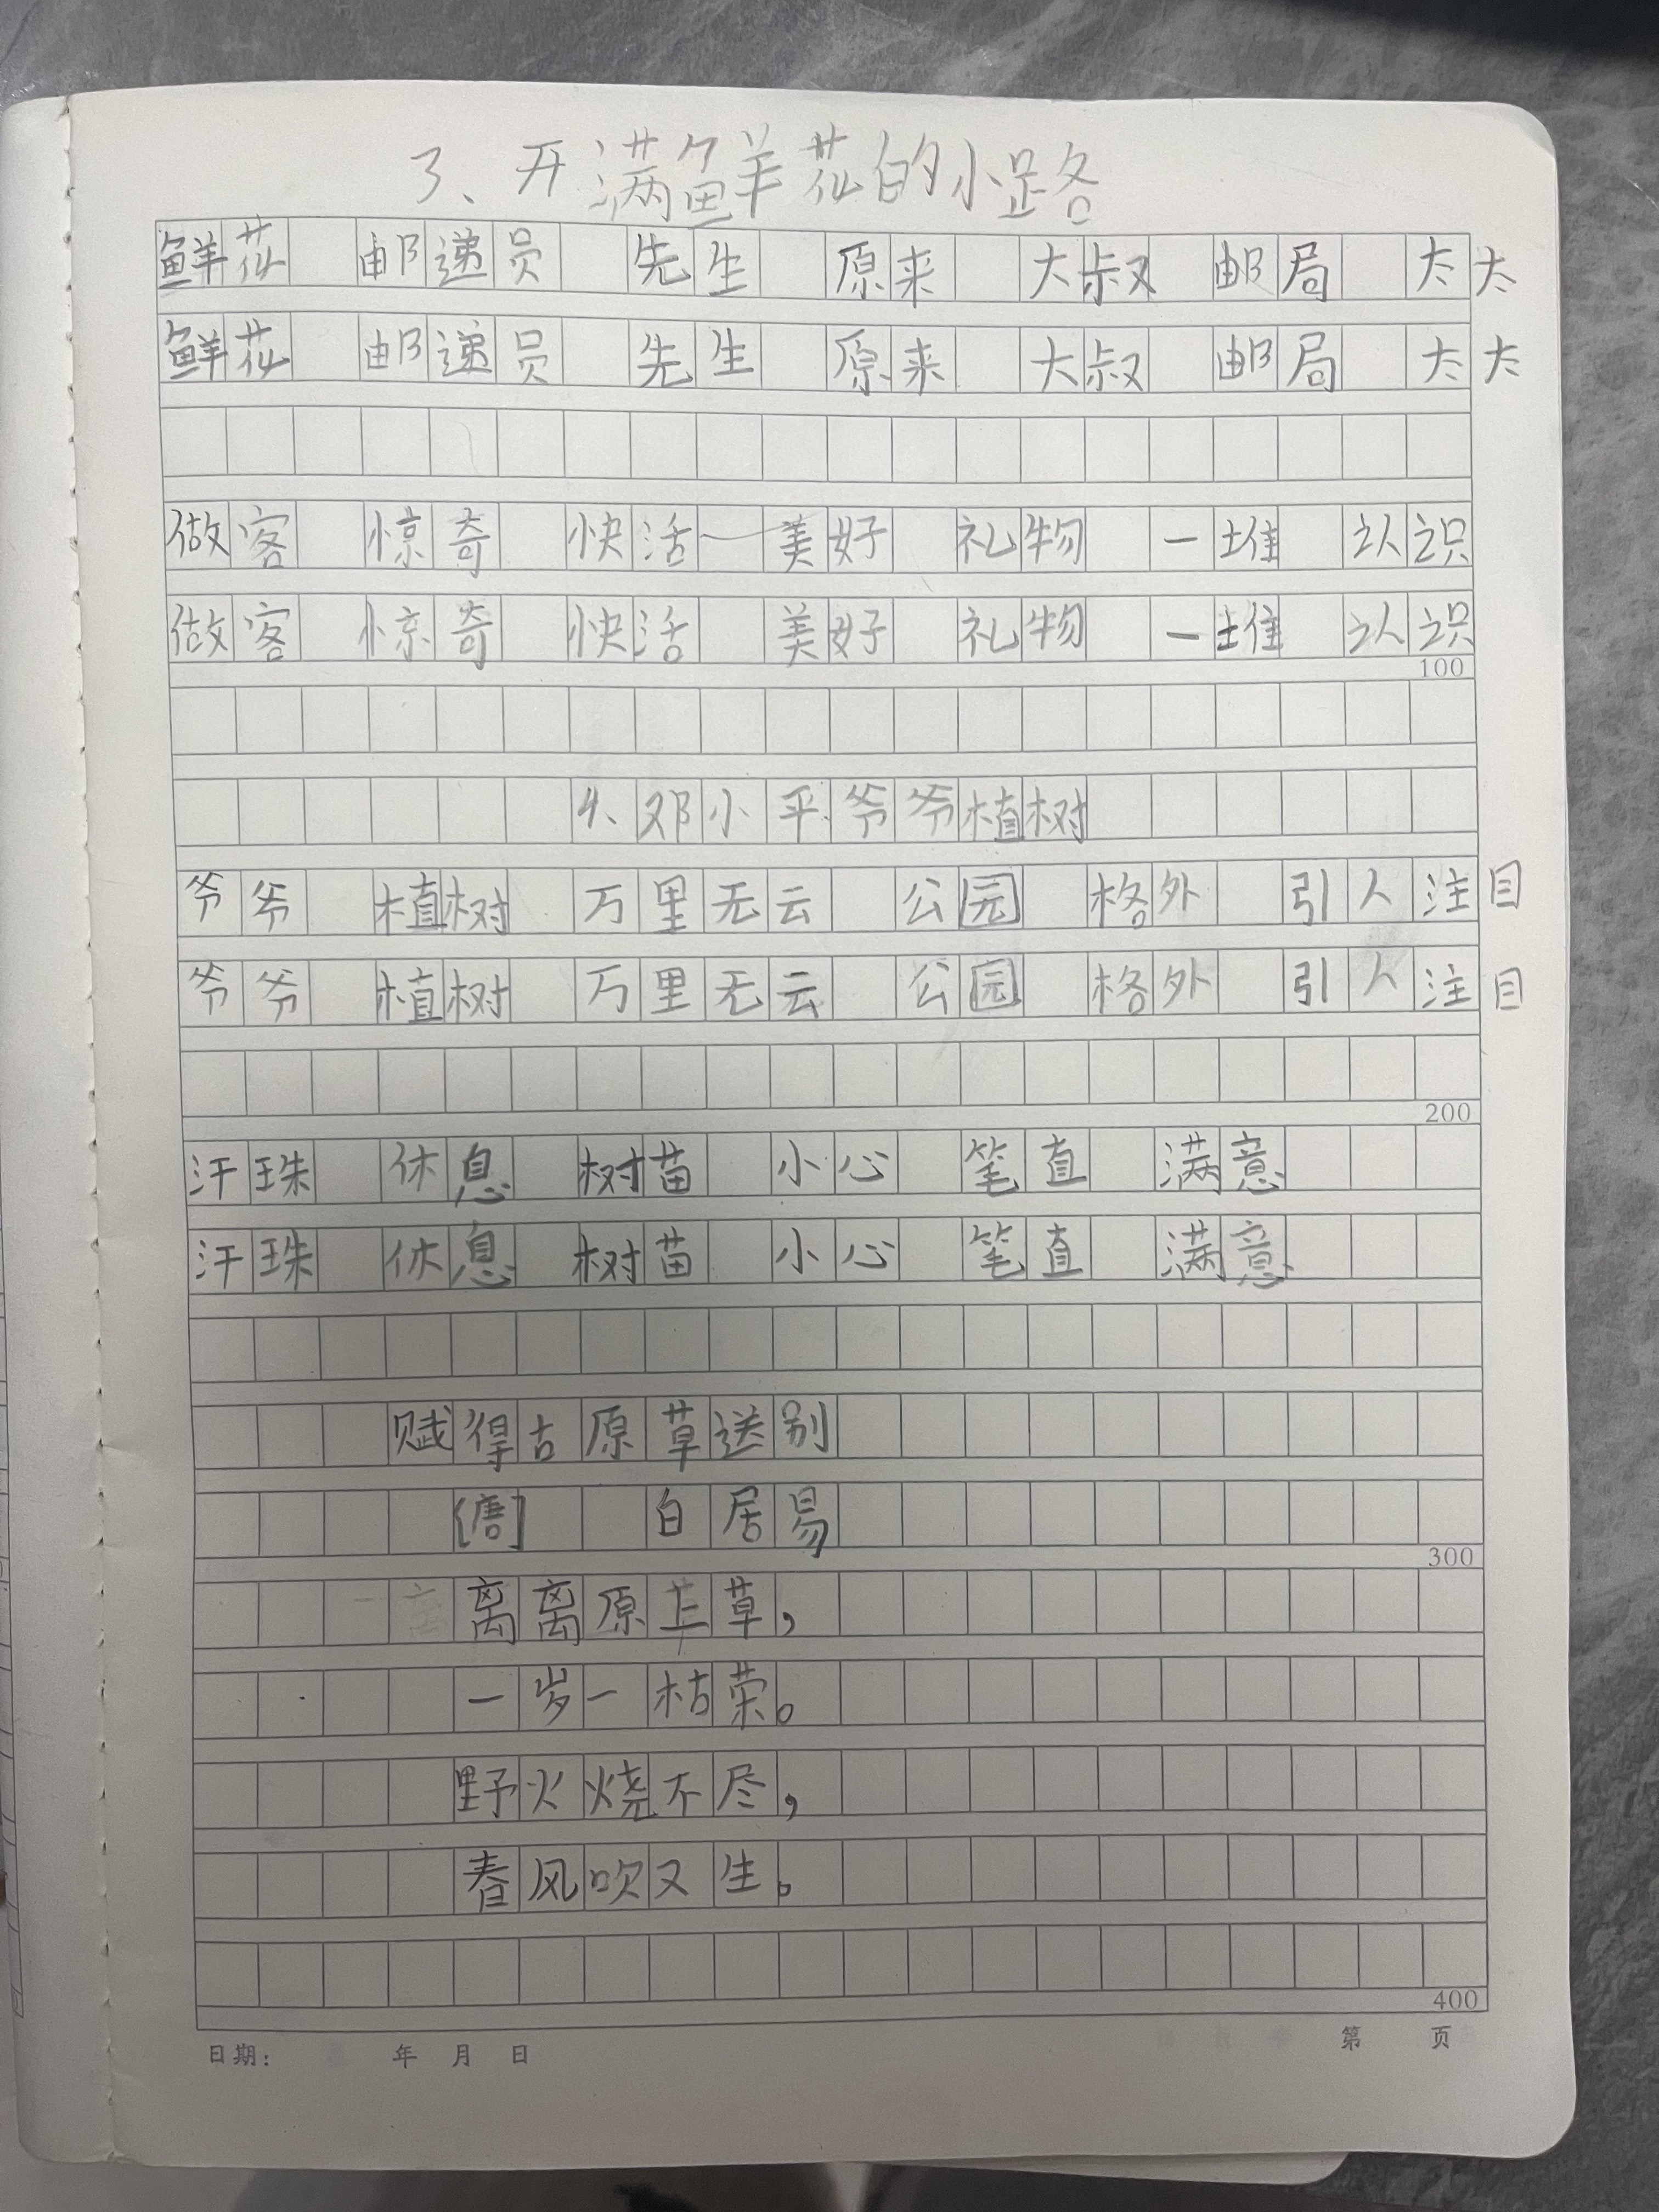 3、开满鲜花的小路
鲜花 邮递员 先生 原来 大叔 邮局 太太
鲜花 邮递员 先生 原来 大叔 邮局 太太
做客 惊奇 快活 美好 礼物 一堆 认识
做客 惊奇 快活 美好 礼物 一堆 认识
100
4、邓小平爷爷植树
爷爷 植树 万里无云 公园 格外 引人注目
爷爷 植树 万里无云 公园 格外 引人注目
200
汗珠 休息 树苗 小心 笔直 满意
汗珠 休息 树苗 小心 笔直 满意
赋得古原草送别
[唐] 白居易
300
离离原上草,
一岁一枯荣。
野火烧不尽,
春风吹又生。
400
日期: 年 月 日 第 页